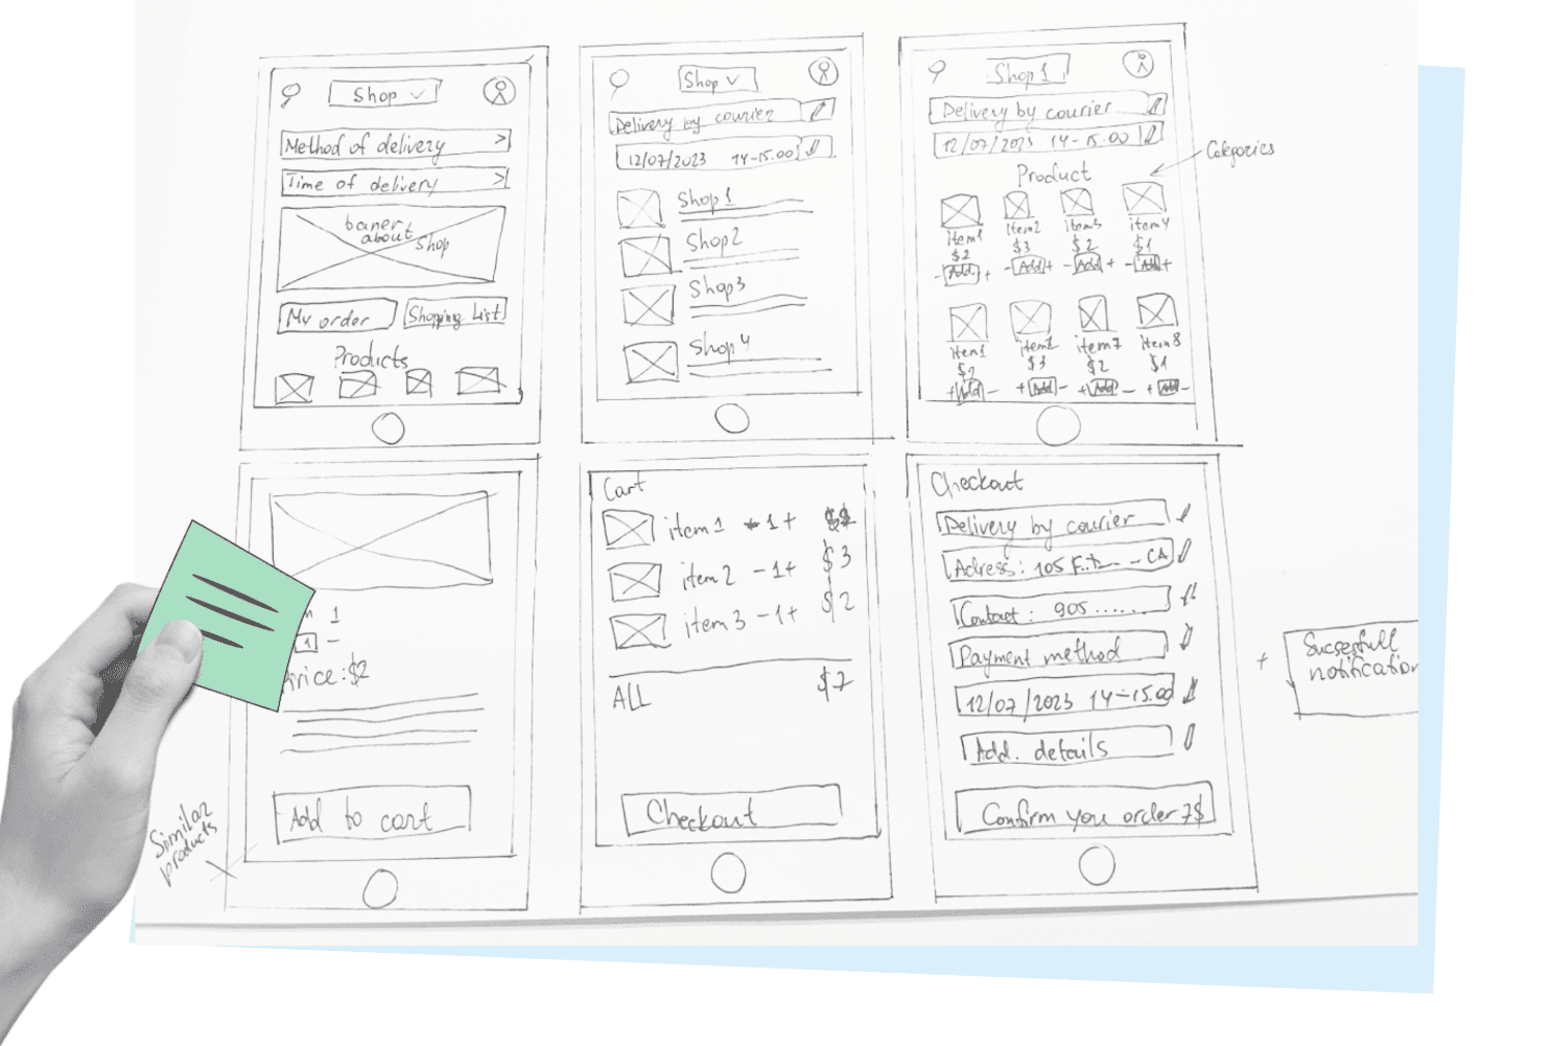 Shop
Method of delivery >
Time of delivery >
baner
about shop
My order
Shopping List
Products
Shop
Delivery by courier
12/07/2023 14-15.00
Shop 1
Shop 2
Shop 3
Shop 4
Shop 1
Delivery by courier
12/07/2023 14-15.00
Categories
Product
item1 item2 item3 item4
$2 $3 $2 $1
- Add + - Add + - Add + - Add +
item1 item2 item7 item8
$2 $3 $2 $1
+ Add - + Add - + Add - + Add -
1
1 -
Price: $2
Add to cart
Similar
products
Cart
item 1 - 1 +
item 2 - 1 + $3
item 3 - 1 + $2
ALL $7
Checkout
Checkout
Delivery by courier
Adress: 105 CA
Contact: 905 ......
Payment method
12/07/2023 14-15.00
Add. details
Confirm you order 7$
+
Sucsesfull
notification